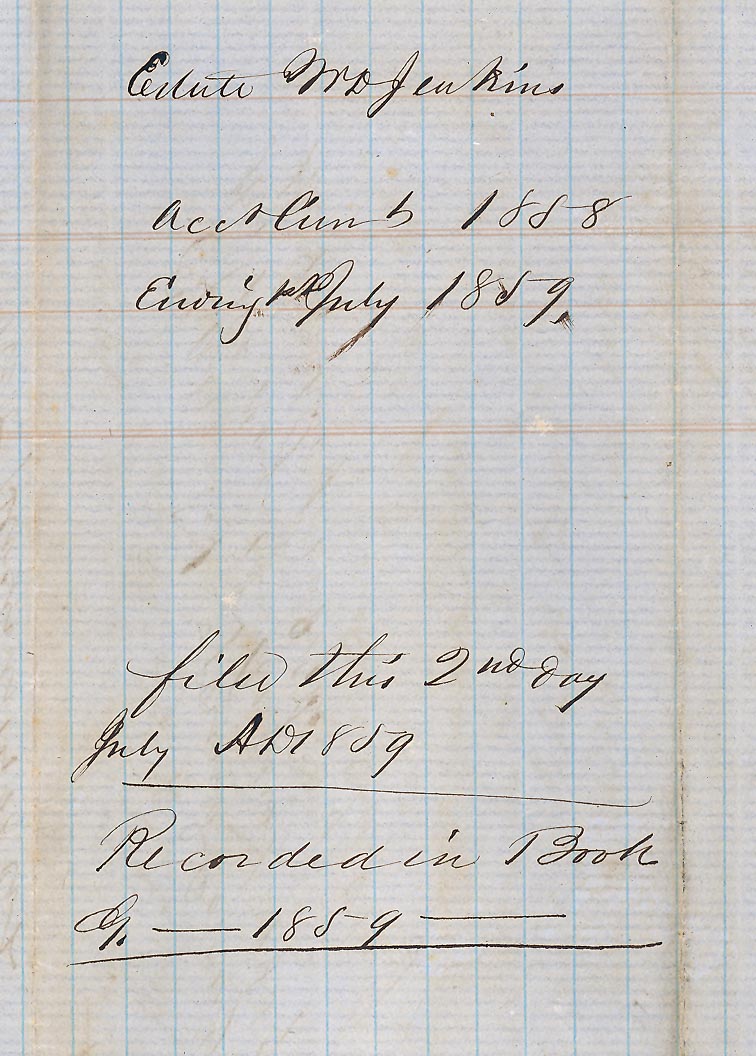 Estate W D Jenkins
Acct Curnt 1858
Ending 1st July 1859
filed this 2nd day
July AD 1859
Recorded in Book
G. — 1859 —